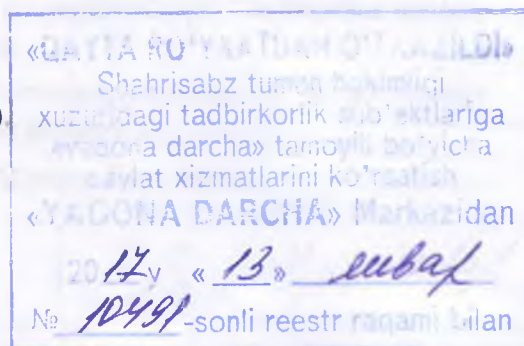 «QAYTA RO'YXATDAN O'TKAZILDI»
Shahrisabz tuman hokimligi
xuzuridagi tadbirkorlik sub'ektlariga
«yagona darcha» tamoyili bo'yicha
davlat xizmatlarini ko'rsatish
«YAGONA DARCHA» Markazidan
2017 y «13» январ
№ 10491-sonli reestr raqami bilan